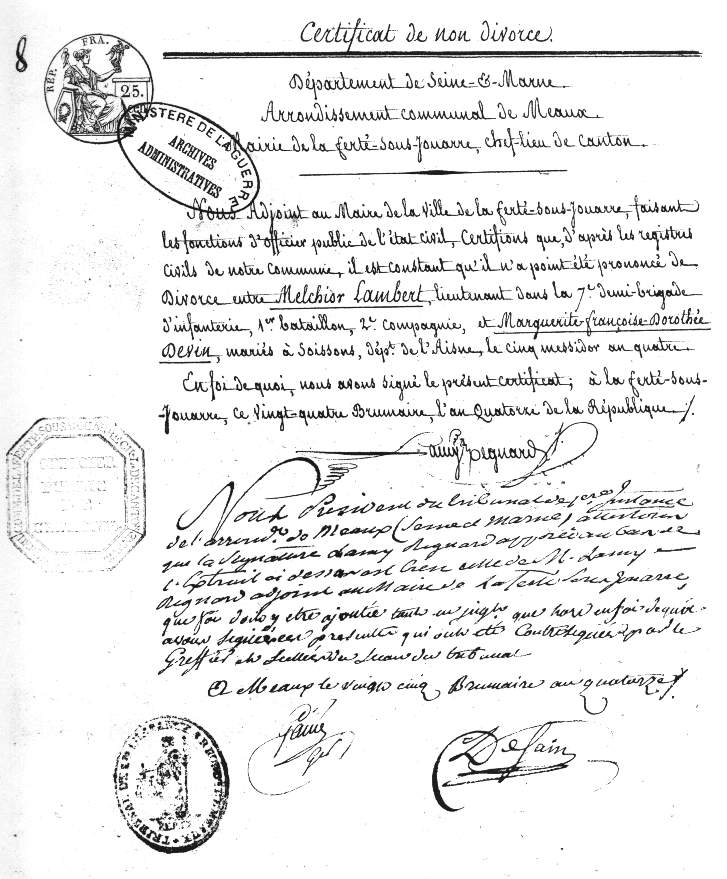 8
Certificat de non divorce.
RÉP. FRA.
25.
MINISTERE DE LA GUERRE
ARCHIVES
ADMINISTRATIVES
Département de Seine-&-Marne.
Arrondissement communal de Meaux.
Mairie de la ferté-sous-Jouarre, chef-lieu de canton.
Nous Adjoint au Maire de la ville de la ferté-sous-Jouarre, faisant
les fonctions d'officier public de l'état civil, Certifions que, d'après les registres
civils de notre commune, il est constant qu'il n'a point été prononcé de
Divorce entre Melchior Lambert, lieutenant dans la 7e demi-brigade
d'infanterie, 1er bataillon, 2e compagnie, et Marguerite-françoise-Dorothée
Devin, mariés à Soissons, dépt de l'Aisne, le cinq messidor an quatre.
En foi de quoi, nous avons signé le présent certificat; à la ferté-sous-
Jouarre, ce vingt-quatre Brumaire, l'an Quatorze de la République
Lamy Regnard
Nous Président du tribunal de 1ere Instance
de l'arrondt de Meaux (Seine et Marne) attestons
que la signature Lamy Regnard apposée au bas de
l'Extrait ci dessus est celle de M. Lamy
Regnard adjoint au Maire de la ferté sous Jouarre,
que foi doit y etre ajoutée tant en jugt que hors en foi de quoi
avons signé ces presentes qui ont été contresignées par le
Greffier et scellées du sceau du tribunal
A Meaux le vingt cinq Brumaire an quatorze